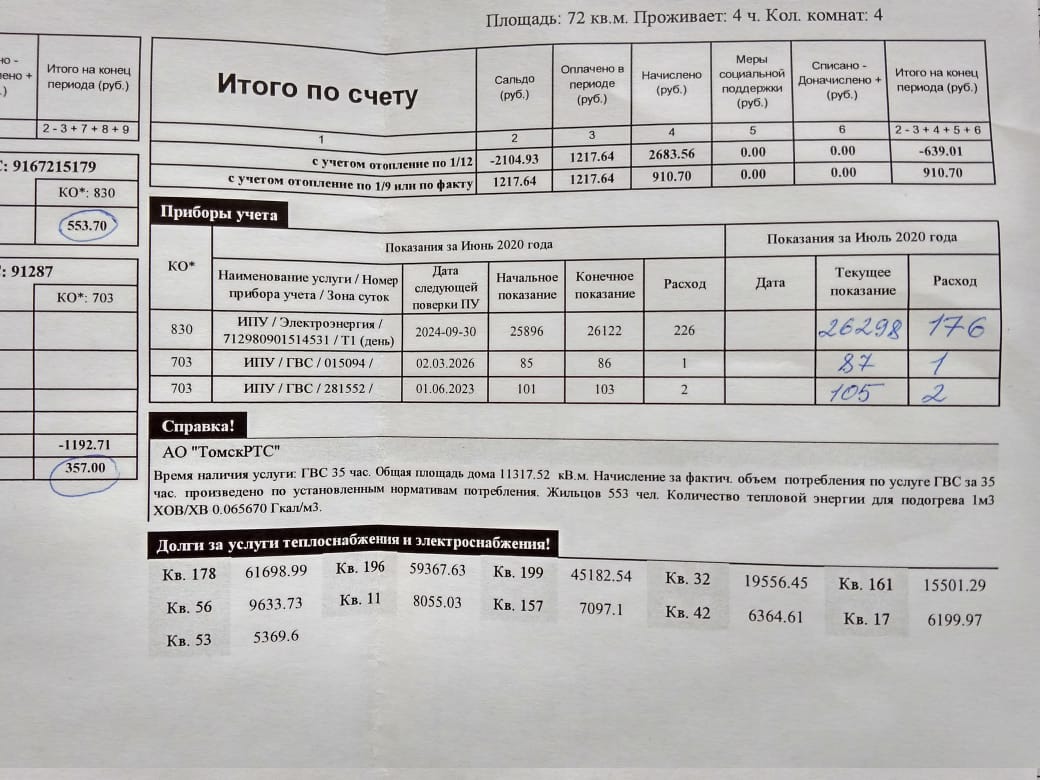 Площадь: 72 кв.м. Проживает: 4 ч. Кол. комнат: 4
Итого на конец периода (руб.)
2 - 3 + 7 + 8 + 9
: 9167215179
КО*: 830
553.70
: 91287
КО*: 703
-1192.71
357.00
Итого по счету
Сальдо (руб.)
Оплачено в периоде (руб.)
Начислено (руб.)
Меры социальной поддержки (руб.)
Списано - Доначислено + (руб.)
Итого на конец периода (руб.)
1 2 3 4 5 6 2 - 3 + 4 + 5 + 6
с учетом отопление по 1/12 -2104.93 1217.64 2683.56 0.00 0.00 -639.01
с учетом отопление по 1/9 или по факту 1217.64 1217.64 910.70 0.00 0.00 910.70
Приборы учета
КО*
Показания за Июнь 2020 года
Показания за Июль 2020 года
Наименование услуги / Номер прибора учета / Зона суток
Дата следующей поверки ПУ
Начальное показание
Конечное показание
Расход
Дата
Текущее показание
Расход
830 ИПУ / Электроэнергия / 712980901514531 / Т1 (день) 2024-09-30 25896 26122 226 26298 176
703 ИПУ / ГВС / 015094 / 02.03.2026 85 86 1 87 1
703 ИПУ / ГВС / 281552 / 01.06.2023 101 103 2 105 2
Справка!
АО "ТомскРТС"
Время наличия услуги: ГВС 35 час. Общая площадь дома 11317.52 кВ.м. Начисление за фактич. объем потребления по услуге ГВС за 35
час. произведено по установленным нормативам потребления. Жильцов 553 чел. Количество тепловой энергии для подогрева 1м3
ХОВ/ХВ 0.065670 Гкал/м3.
Долги за услуги теплоснабжения и электроснабжения!
Кв. 178 61698.99 Кв. 196 59367.63 Кв. 199 45182.54 Кв. 32 19556.45 Кв. 161 15501.29
Кв. 56 9633.73 Кв. 11 8055.03 Кв. 157 7097.1 Кв. 42 6364.61 Кв. 17 6199.97
Кв. 53 5369.6